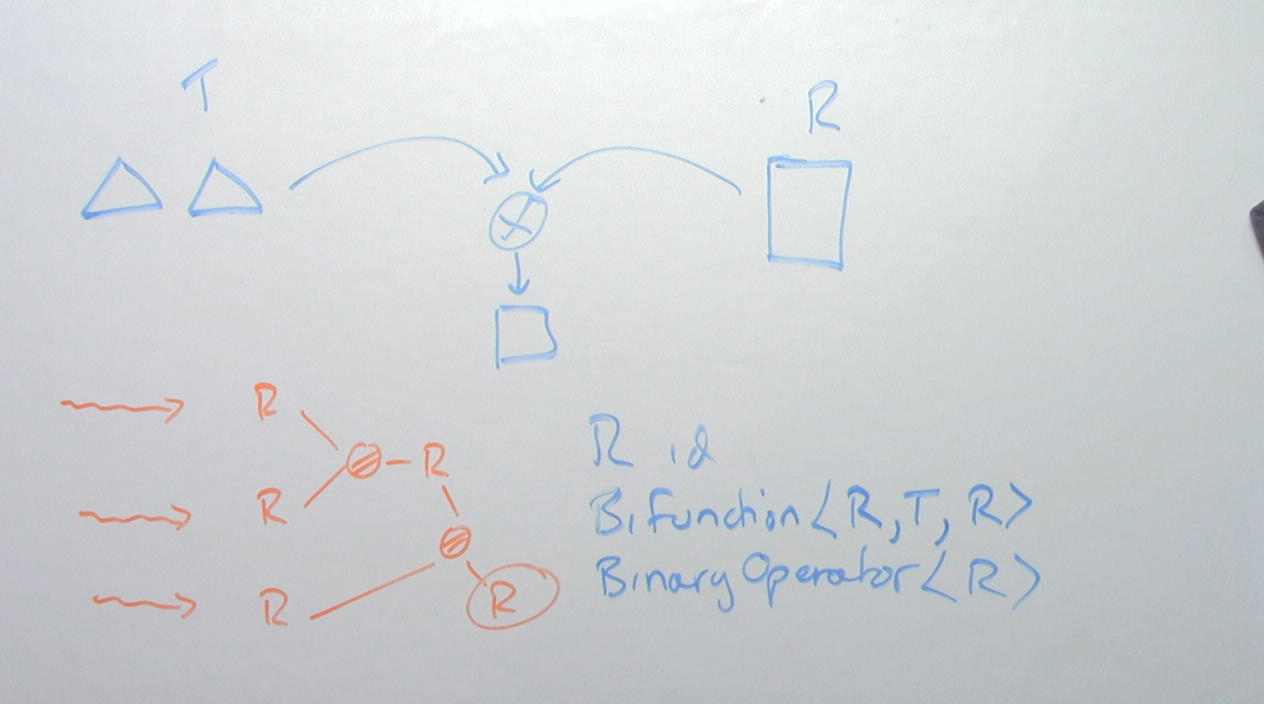 T
R
R
R
R
R
R
R id
BiFunction<R,T,R>
BinaryOperator<R>